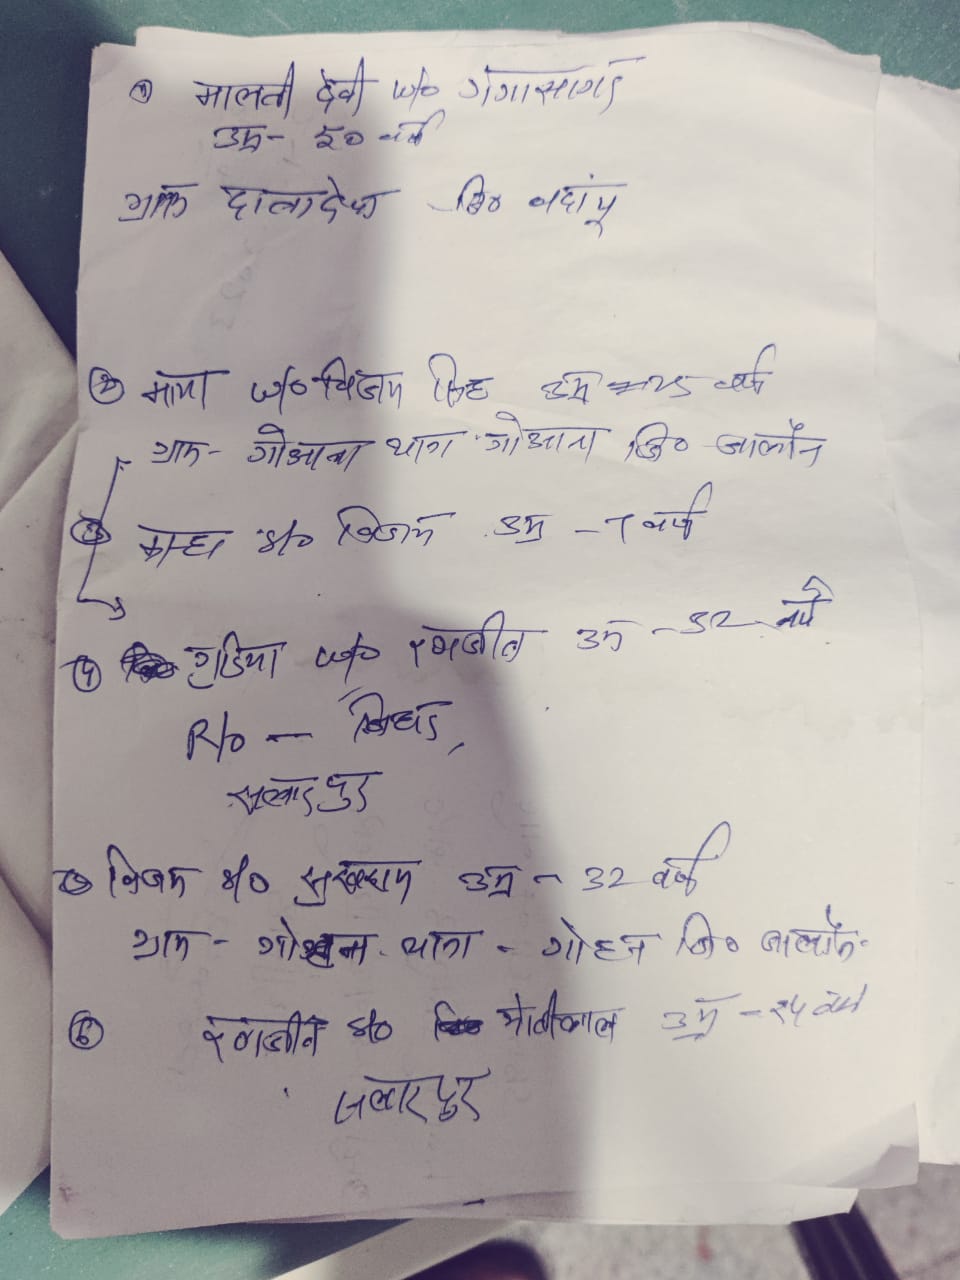 ① मालती देवी w/o गंगासागर
उम्र - ५० वर्ष
ग्राम जि० बदांयू
② माया w/o विजय सिंह उम्र २५ वर्ष
ग्राम - गोआना थाना गोआना जि० जालौन
③ s/o विजय उम्र - 7 वर्ष
④ गुडिया w/o रणजीत उम्र - 32 वर्ष
R/o -
विजय s/o सुखधाम उम्र - 32 वर्ष
ग्राम - थाना - गोहन जि० जालौन
⑥ रणजीत s/o मोतीलाल उम्र - ३५ वर्ष